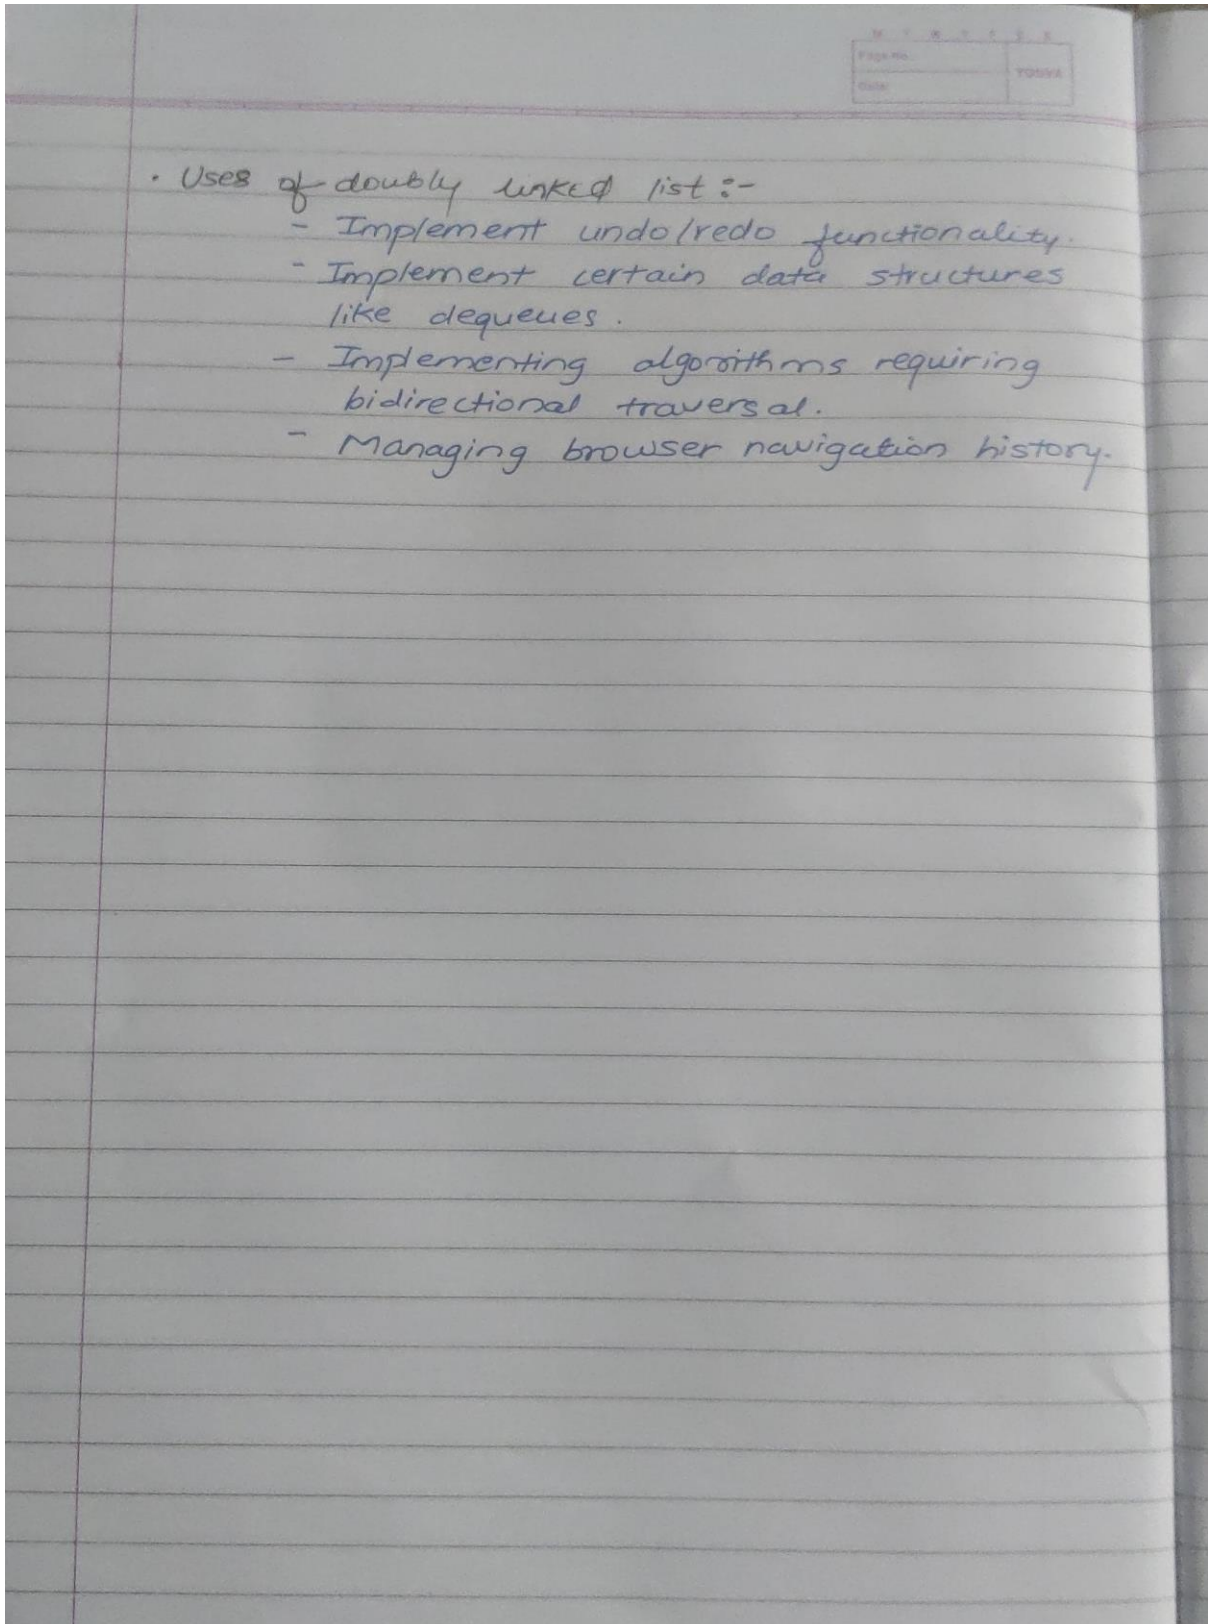 M T W T F S S
Page No.:
Date:
YOUVA
• Uses of doubly linked list :-
- Implement undo/redo functionality.
- Implement certain data structures
like dequeues.
- Implementing algorithms requiring
bidirectional traversal.
- Managing browser navigation history.